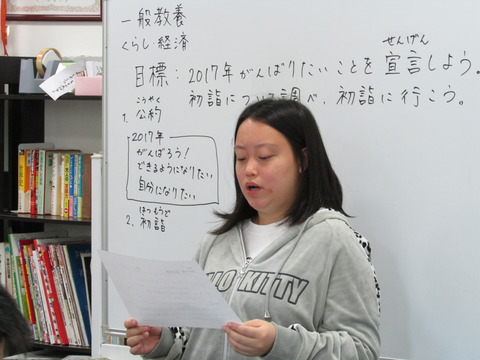 一般教養
くらし・経済
せんげん
目標：2017年がんばりたいことを宣言しよう。
初詣について調べ、初詣に行こう。
こうやく
1. 公約
2017年
がんばろう！
できるようになりたい
自分になりたい
はつもうで
2. 初詣
HELLO KITTY